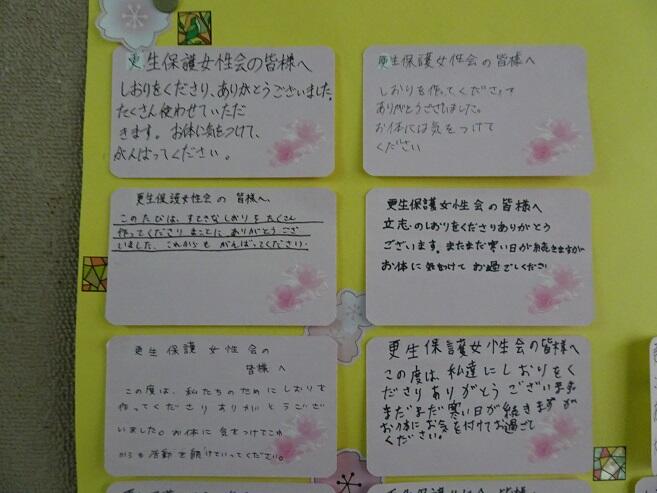 更生保護女性会の皆様へ
しおりをくださり、ありがとうございました。
たくさん使わせていただ
きます。お体に気をつけて、
がんばってください。
更生保護女性会の皆様へ
しおりを作ってくださって
ありがとうございました。
お体には気をつけて
ください
更生保護女性会の皆様へ、
このたびは、すてきなしおりをたくさん
作ってくださりまことにありがとうござ
いました。これからもがんばってください。
更生保護女性会の皆様へ
立志のしおりをくださりありがとう
ございます。まだまだ寒い日が続きますが
お体に気をつけてお過ごしください
更生保護女性会の
皆様へ
この度は、私たちのためにしおりを
作ってくださりありがとうござ
いました。お体に気をつけてこれ
からも活動を続けていってください。
更生保護女性会の皆様へ
この度は、私達にしおりをく
ださりありがとうございます
まだまだ寒い日が続きますが
お体にお気を付けてお過ごし
ください。